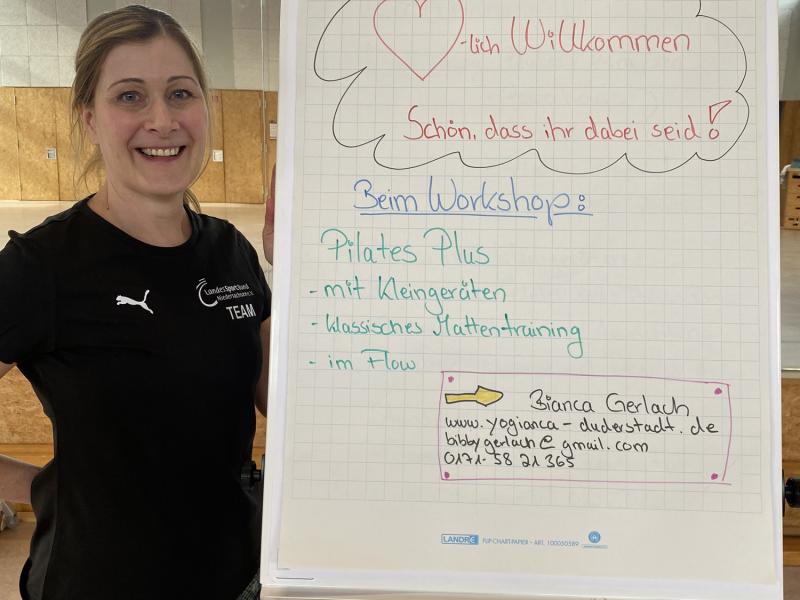 -lich Willkommen
Schön, dass ihr dabei seid!
Beim Workshop:
Pilates Plus
- mit Kleingeräten
- klassisches Mattentraining
- im Flow
Bianca Gerlach
www.yogianca-duderstadt.de
bibbygerlach@gmail.com
0171-58 21 365
LandesSportBund
Niedersachsen e.V.
TEAM
LANDRÉ FLIP-CHART-PAPIER - ART. 100050589